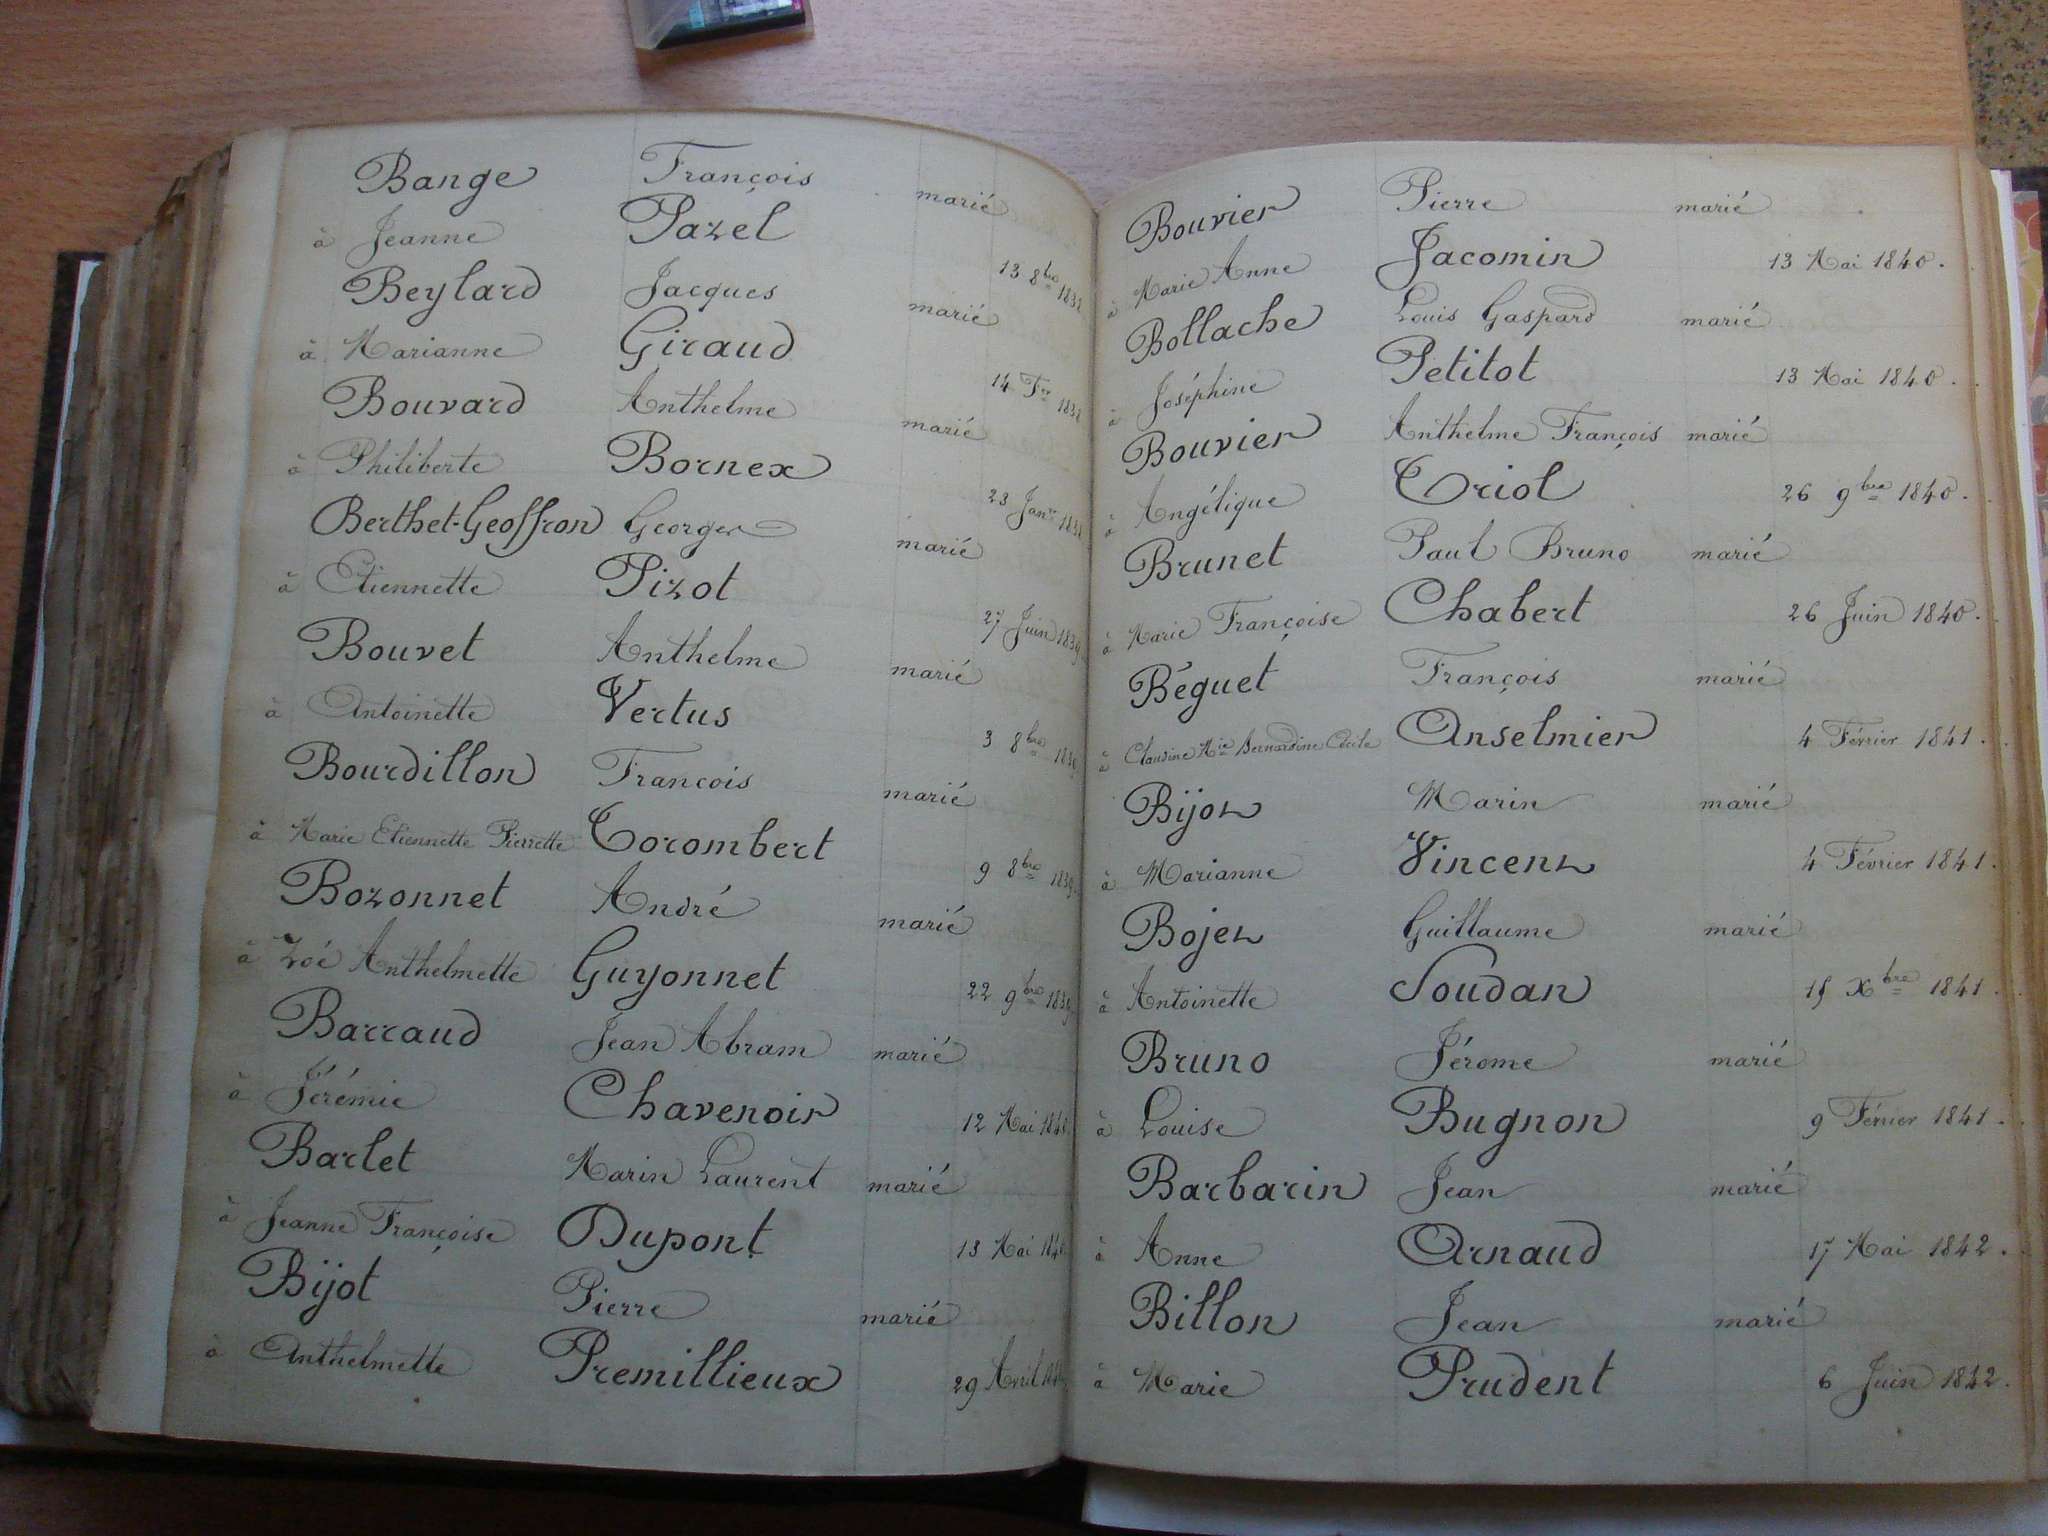 Bange François marié
à Jeanne Pazel 13 8bre 1838
Beylard Jacques marié
à Marianne Giraud 14 Fer 1838
Bouvard Anthelme marié
à Philiberte Bornex 23 Janr 1838
Berthet-Geoffron Georges marié
à Etiennette Pizot 27 Juin 1839
Bouvet Anthelme marié
à Antoinette Vertus 3 8bre 1839
Bourdillon François marié
à Marie Etiennette Pierrette Corombert 9 8bre 1839.
Bozonnet André marié
à Zoé Anthelmette Guyonnet 22 9bre 1839
Barraud Jean Abram marié
à Jérémie Chavenoir 12 Mai 1840
Barlet Marin Laurent marié
à Jeanne Françoise Dupont 13 Mai 1840
Bijot Pierre marié
à Anthelmette Premillieux 29 Avril
Bouvier Pierre marié
à Marie Anne Jacomin 13 Mai 1840.
Bollache Louis Gaspard marié
à Joséphine Petitot 13 Mai 1840.
Bouvier Anthelme François marié
à Angélique Oriol 26 9bre 1840.
Brunet Paul Bruno marié
à Marie Françoise Chabert 26 Juin 1840.
Béguet François marié
à Claudine Mie Bernardine Cécile Anselmier 4 Février 1841.
Bijoz Marin marié
à Marianne Vincenz 4 Février 1841.
Bojez Guillaume marié
à Antoinette Soudan 15 Xbre 1841.
Bruno Jérome marié
à Louise Bugnon 9 Février 1841.
Barbarin Jean marié
à Anne Arnaud 17 Mai 1842.
Billon Jean marié
à Marie Prudent 6 Juin 1842.